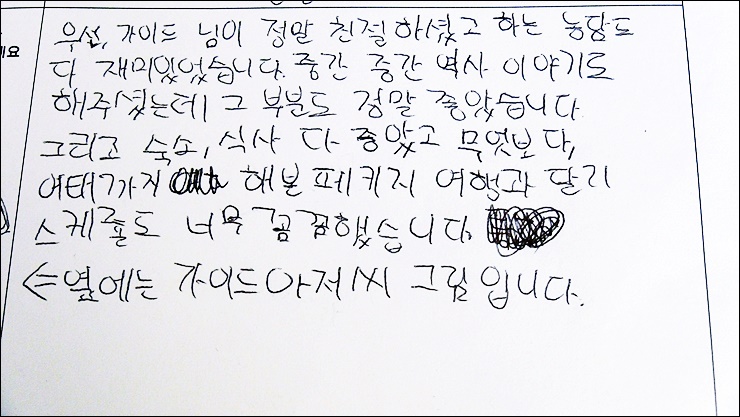 우선, 가이드 님이 정말 친절하셨고 하는 농담도
다 재미있었습니다. 중간 중간 역사 이야기도
해주셨는데 그 부분도 정말 좋았습니다
그리고 숙소, 식사 다 좋았고 무엇보다,
여태까지 해본 페키지 여행과 달리
스케줄도 너무 꼼꼼했습니다.
<=옆에는 가이드아저씨 그림입니다.